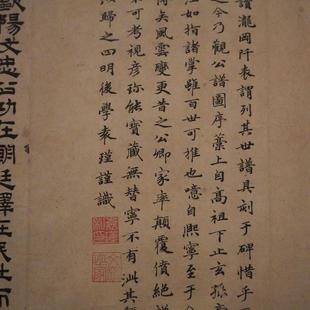 讀瀧岡阡表謂列其世譜具刻于碑惜乎
之今乃觀公譜圖序藁上自高祖下止玄孫
江如指諸掌雖百世可推也噫自熙寧至于
得矣風雲變更昔之公卿家率顛覆債絶
不可考視彥珎能寳藏無替寧不有泚其
歸之四明後學袁瑾謹識
歐陽文忠公功在朝廷澤在民社而